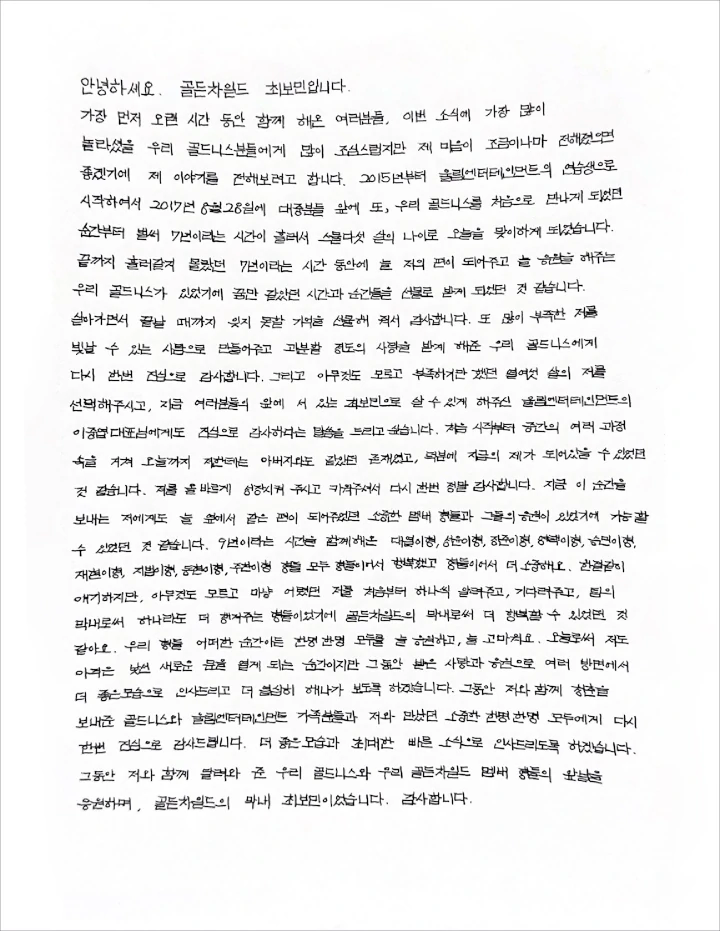 안녕하세요. 골든차일드 최보민입니다.
가장 먼저 오랜 시간 동안 함께 해온 여러분들, 이번 소식에 가장 많이
놀라셨을 우리 골드니스분들에게 많이 조심스럽지만 제 마음이 조금이나마 전해졌으면
좋겠기에 제 이야기를 전해보려고 합니다. 2015년부터 울림엔터테인먼트의 연습생으로
시작하여서 2017년 8월 28일에 대중분들 앞에 또, 우리 골드니스를 처음으로 만나게 되었던
순간부터 벌써 7년이라는 시간이 흘러서 스물다섯 살의 나이로 오늘을 맞이하게 되었습니다.
끝까지 흘러갈지 몰랐던 7년이라는 시간 동안에 늘 저의 편이 되어주고 늘 응원을 해주는
우리 골드니스가 있었기에 꿈만 같았던 시간과 순간들을 선물로 받게 되었던 것 같습니다.
살아가면서 끝날 때까지 잊지 못할 기억을 선물해 줘서 감사합니다. 또 많이 부족한 저를
빛날 수 있는 사람으로 만들어주고 과분할 정도의 사랑을 받게 해준 우리 골드니스에게
다시 한번 진심으로 감사합니다. 그리고 아무것도 모르고 부족하기만 했던 열여섯 살의 저를
선택해주시고, 지금 여러분들의 앞에 서 있는 최보민으로 살 수 있게 해주신 울림엔터테인먼트의
이중엽 대표님에게도 진심으로 감사하다는 말씀을 드리고 싶습니다. 처음 시작부터 중간의 여러 과정
속을 거쳐 오늘까지 저한테는 아버지와도 같았던 존재였고, 덕분에 지금의 제가 되어있을 수 있었던
것 같습니다. 저를 올바르게 성장시켜 주시고 키워주셔서 다시 한번 정말 감사합니다. 지금 이 순간을
보내는 저에게도 늘 옆에서 같은 편이 되어주었던 소중한 멤버 형들과 그들의 응원이 있었기에 가능할
수 있었던 것 같습니다. 9년이라는 시간을 함께해온 대열이형, 성윤이형, 장준이형, 영택이형, 승민이형,
재현이형, 지범이형, 동현이형, 주찬이형 형들 모두 형들이어서 행복했고 형들이어서 더 소중해요. 한결같이
얘기하지만, 아무것도 모르고 마냥 어렸던 저를 처음부터 하나씩 알려주고, 기다려주고, 팀의
막내로써 하나라도 더 챙겨주는 형들이었기에 골든차일드의 막내로써 더 행복할 수 있었던 것
같아요. 우리 형들 어떠한 순간이든 한명 한명 모두를 늘 응원하고, 늘 고마워요. 오늘로써 저도
아직은 낯선 새로운 문을 열게 되는 순간이지만 그동안 받은 사랑과 응원으로 여러 방면에서
더 좋은모습으로 인사드리고 더 열심히 해나가 보도록 하겠습니다. 그동안 저와 함께 청춘을
보내준 골드니스와 울림엔터테인먼트 가족분들과 저와 만났던 소중한 한명 한명 모두에게 다시
한번 진심으로 감사드립니다. 더 좋은 모습과 최대한 빠른 소식으로 인사드리도록 하겠습니다.
그동안 저와 함께 달려와 준 우리 골드니스와 우리 골든차일드 멤버 형들의 앞날을
응원하며, 골든차일드의 막내 최보민이었습니다. 감사합니다.